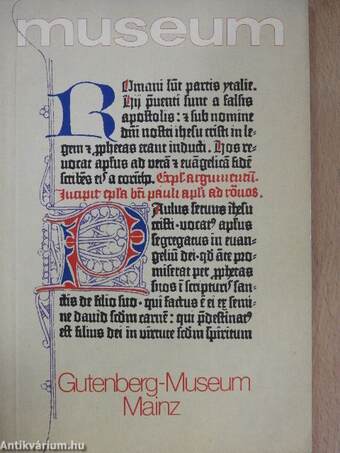 museum
Romani sūt partis ytalie.
Hij p̄uenti sunt a falsis
apostolis: ⁊ sub nomine
dn̄i nostri ihesu cristi in le-
gem ⁊ ꝓphetas erant inducti. Hos re-
uocat apl̄us ad verā ⁊ euāgelicā fidē
scribēs eis a corītho. Explicit argumentū.
Incipit epl̄a bt̄i pauli apl̄i ad rōnos.
Paulus seruus ihesu
cristi· vocatꝰ apl̄us
segregatus in euan-
geliū dei· qd̄ āte pro-
miserat per ꝓphetas
suos ī scripturis san-
ctis de filio suo· qui factus ē ei ex semi-
ne dauid scd̄m carnē: qui p̄destinatꝰ
est filius dei in virtute scd̄m spiritum
Gutenberg-Museum
Mainz
Antikvárium.hu